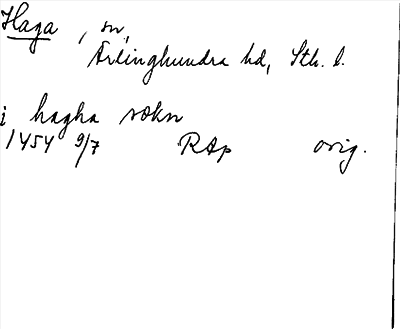 Haga, sn,
Ärlinghundra hd, Sth. l.
i hagha sokn
1454 9/7 RAp orig.